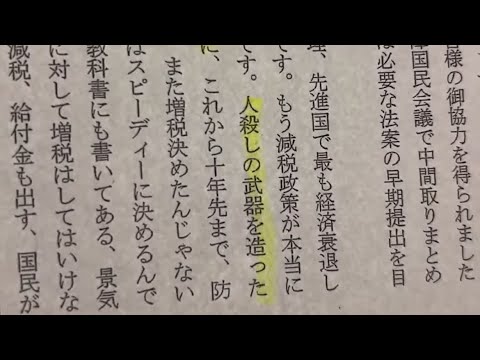 皆様の御協力を得られました
国民会議で中間取りまとめ
は必要な法案の早期提出を目
理、先進国で最も経済衰退し
です。もう減税政策が本当に
です。人殺しの武器を造った
に、これから十年先まで、防
また増税決めたんじゃない
はスピーディーに決めるんで
教科書にも書いてある、景気
に対して増税はしてはいけな
減税、給付金も出す、国民が